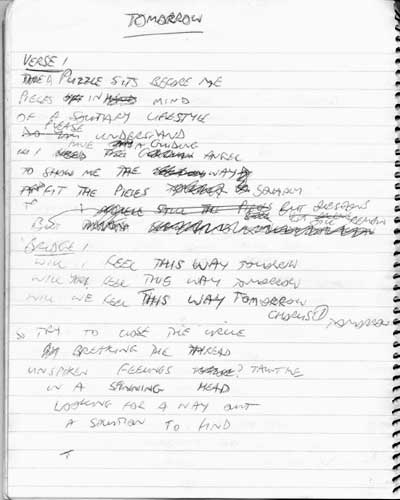 TOMORROW
VERSE 1
A PUZZLE SITS BEFORE ME
PIECES IN MIND
OF A SOLITARY LIFESTYLE
PLEASE UNDERSTAND
I HAVE A GUIDING ANGEL
TO SHOW ME THE WAY
TO FIT THE PIECES SQUARELY
BUT QUESTIONS
BUT STILL REMAIN
BRIDGE 1
WILL I FEEL THIS WAY TOMORROW
WILL YOU FEEL THIS WAY TOMORROW
WILL WE FEEL THIS WAY TOMORROW
CHORUS 1 TOMORROW
SO TRY TO CLOSE THE CIRCLE
BREAKING THE THREAD
UNSPOKEN FEELINGS
IN A SPINNING HEAD
LOOKING FOR A WAY OUT
A SOLUTION TO FIND